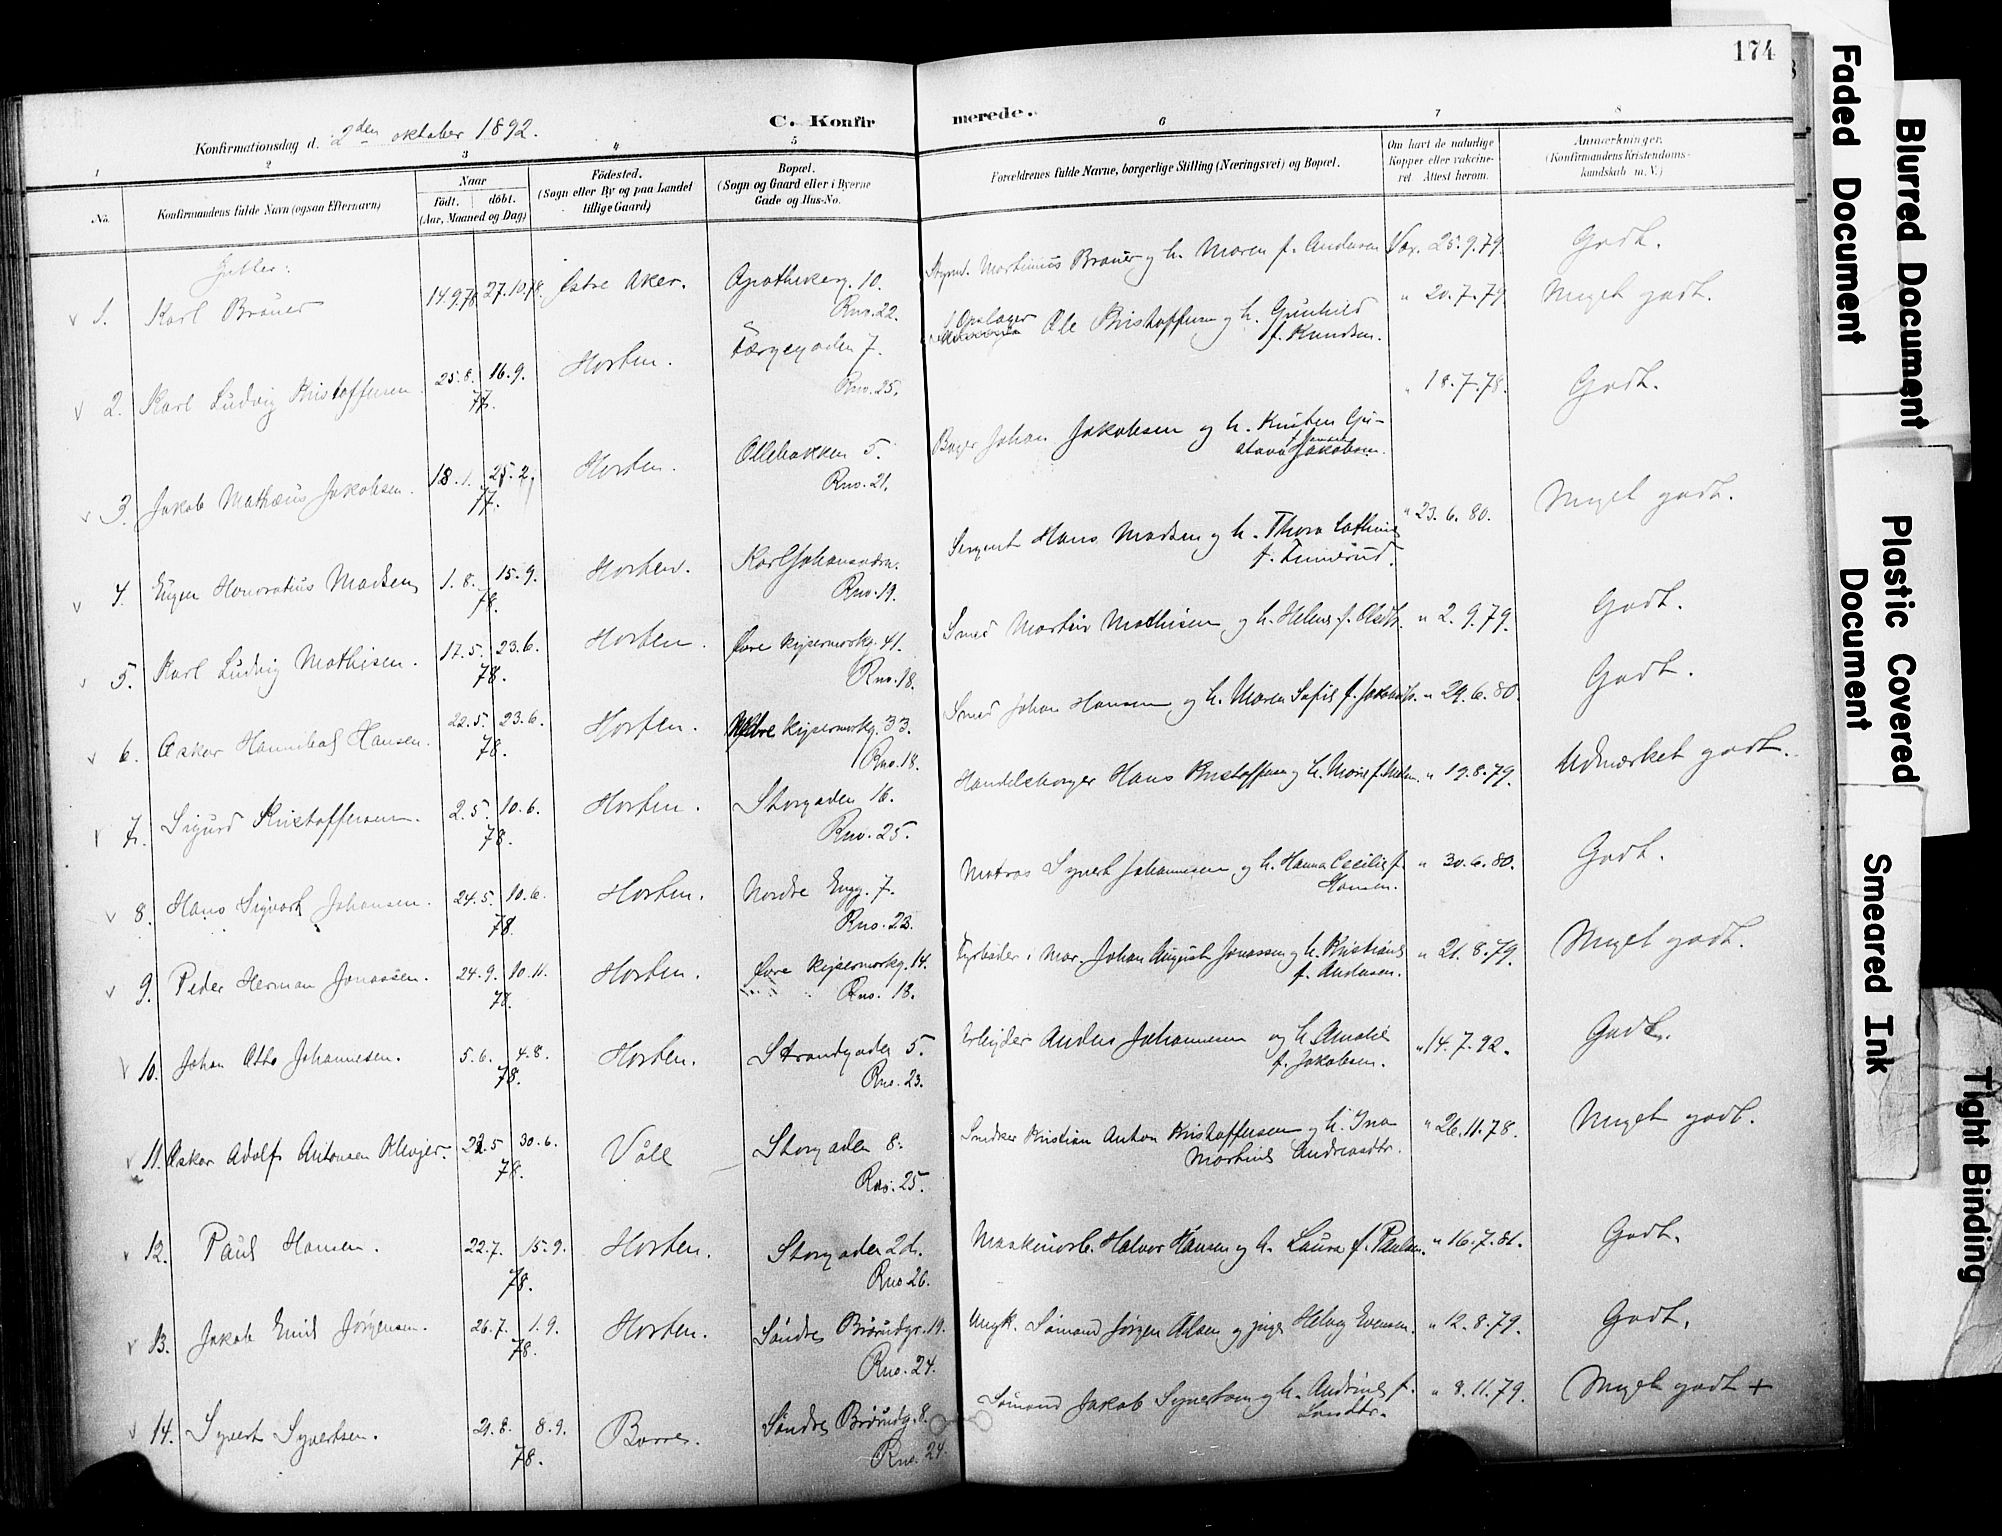 174
Konfirmationsdag d. 2den oktober 1892.
C. Konfirmerede.
1 2 3 4 5 6 7 8
No.
Konfirmandens fulde Navn (ogsaa Efternavn)
Naar
født. döbt.
(Aar, Maaned og Dag)
Födested.
(Sogn eller By og paa Landet
tillige Gaard)
Bopæl.
(Sogn og Gaard eller i Byerne
Gade og Hus-No.
Forældrenes fulde Navne, borgerlige Stilling (Næringsvei) og Bopæl.
Om havt de naturlige
Kopper eller vaccine-
ret Attest herom.
Anmærkninger.
(Konfirmandens Kristendoms-
kundskab m. V.)
Gutter:
1. Karl Brauer 14.9.78 27.10.78. Østre Aker. Apothekerg. 10. Martinius Brauer og h. Maren f. Andersen Vax. 25.9.79. Godt.
Rno. 22.
2. Karl Ludvig Kristoffersen 25.8. 16.9. Horten. Færgegaden 7. Opslager Ole Kristoffersen og h. Gunhild " 20.7.79. Meget godt.
77. Rno. 25. f. Knudsen.
3. Jakob Mathæus Jakobsen. 18.1. 25.2. Horten. Ollebakken 5. Bager Johan Jakobsen og h. Kirsten Gu- " 18.7.78. Godt.
77. Rno. 21. stava Jakobsen.
4. Eugen Honoratius Madsen 1.8. 15.9. Horten. Karl Johansvdn. Sergeant Hans Madsen og h. Thora Cathrine " 23.6.80. Meget godt.
78. Rno. 19.
5. Karl Ludvig Mathisen. 17.5. 23.6. Horten. Øvre Kejsermarkg. 41. Smed Martin Mathisen og h. Helene f. Olsdtr. " 2.9.79. Godt.
78. Rno. 18.
6. Oskar Hannibal Hansen. 22.5. 23.6. Horten. Nedre Kejsermarkg. 33. Smed Johan Hansen og h. Maren Sofie f. " 29.6.80. Godt.
78. Rno. 18.
7. Sigurd Kristoffersen. 2.5. 10.6. Horten. Storgaden 16. Handelsborger Hans Kristoffersen og h. " 19.8.79. Udmærket godt.
78. Rno. 25.
8. Hans Sigvart Johansen. 24.5. 10.6. Horten. Nordre Engg. 7. Matros Syvert Johannesen og h. Hanna Cecilie f. " 30.6.80. Godt.
78. Rno. 22. Hansen.
9. Peder Herman Jonassen. 24.9. 10.11. Horten. Øvre Kejsermarkg. 14. Fyrbøder i Mar. Johan August Jonassen og h. Kristiane " 21.8.79. Meget godt.
78. Rno. 18. f. Andersen.
10. Johan Otto Johannesen. 5.6. 4.8. Horten. Strandgaden 5. Arbejder Anders Johannesen og h. Amalie " 14.7.92. Godt.
78. Rno. 23. f. Jakobsen.
11. Oskar Adolf Antonsen Klevjer. 22.5 30.6. Våle Storgaden 8. Snedker Kristian Anton Kristoffersen og h. Ina " 26.11.78. Meget godt.
78. Rno. 25. Martine Andreasdtr.
12. Paul Hansen. 22.7. 15.9. Horten. Storgaden 2d. Maskinarb. Halvor Hansen og h. Laura f. Paulsen. " 16.7.81. Godt.
78. Rno 26.
13. Jakob Emil Jørgensen. 26.7. 1.9. Horten. Søndre Brårudgr. 19. Ungk. Sømand Jørgen Olsen og pige Helvig Evensen. " 12.8.79. Godt.
78. Rno. 24.
14. Syvert Syvertsen. 21.8. 8.9. Borre. Søndre Brårudg. 8. Sømand Jakob Syvertsen og h. Andrine f. " 8.11.79. Meget godt +
78. Rno. 24
Faded Document
Blurred Document
Plastic Covered
Document
Smeared Ink
Tight Binding